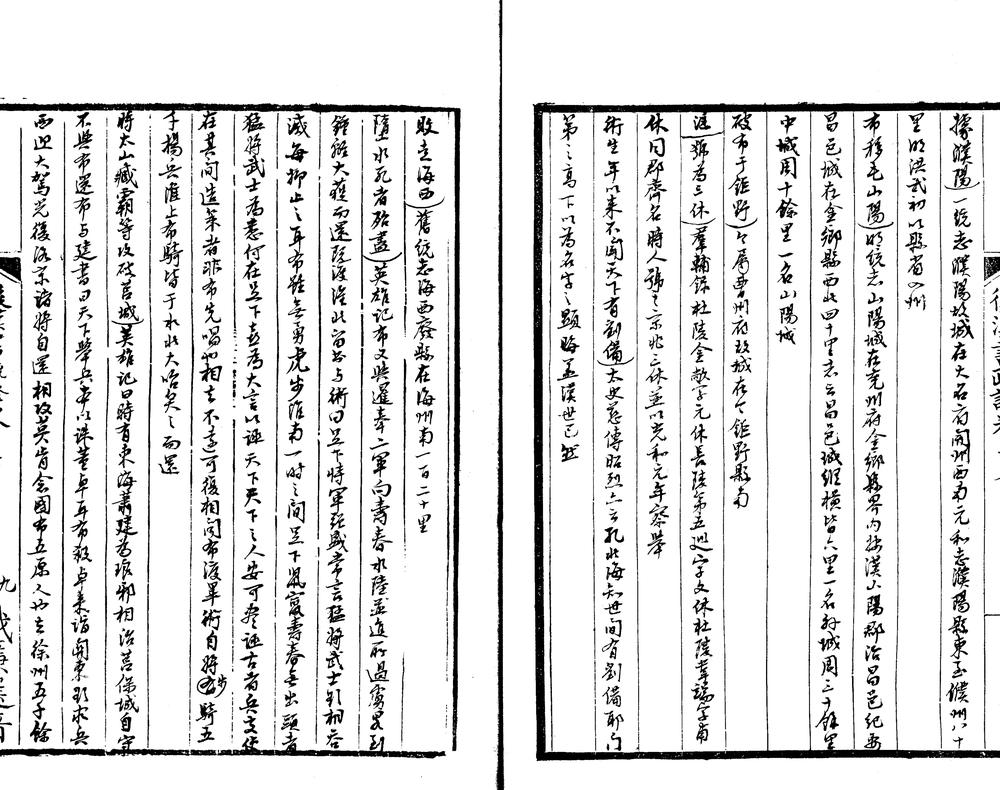 據濮陽一統志濮陽故城在大名府開州西南元和志濮陽縣東至濮州八十
里明洪武初以縣省入州
布移屯山陽明統志山陽城在兗州府金鄉縣界內按漢山陽郡治昌邑紀要
昌邑城在金鄉縣西北四十里志云昌邑城縱橫皆六里一名外城周三十餘里
中城周十餘里一名山陽城
破布于鉅野今屬曹州府故城在今鉅野縣南
注號為三休羣輔錄杜陵金敞字元休長陵第五巡字文休杜陵韋端字甫
休同郡齊名時人號之京兆三休並以光和元年察舉
術生年以來不聞天下有劉備太史慈傳昭烈亦云孔北海知世間有劉備耶
第之高下以為名字之顯晦蓋漢世已然
敗走海西舊統志海西廢縣在海州南一百二十里
墮水死者殆盡英雄記布又與暹奉二軍向壽春水陸並進所過虜畧到
鍾離大獲而還既渡淮北留書與術曰足下恃軍強盛常言猛將武士欲相吞
滅每抑止之耳布雖無勇虎步淮南一時之間足下鼠竄壽春無出頭者
猛將武士為悉何在足下喜為大言以誣天下天下之人安可盡誣古者兵交使
在其間造策者非布先唱也相去不遠可復相聞布渡畢術自將步騎五
千揚兵淮上布騎皆于水北大咍笑之而還
時太山臧霸等攻破莒城英雄記曰時有東海蕭建為琅邪相治莒保城自守
不與布通布與建書曰天下舉兵本以誅董卓耳布殺卓來詣關東欲求兵
西迎大駕光復洛京諸將自還相攻莫肯念國布五原人也去徐州五千餘